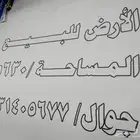 الأرض للبيع
المساحة/٦٣٠
جوال/٣١٤٠٥٦٧٧